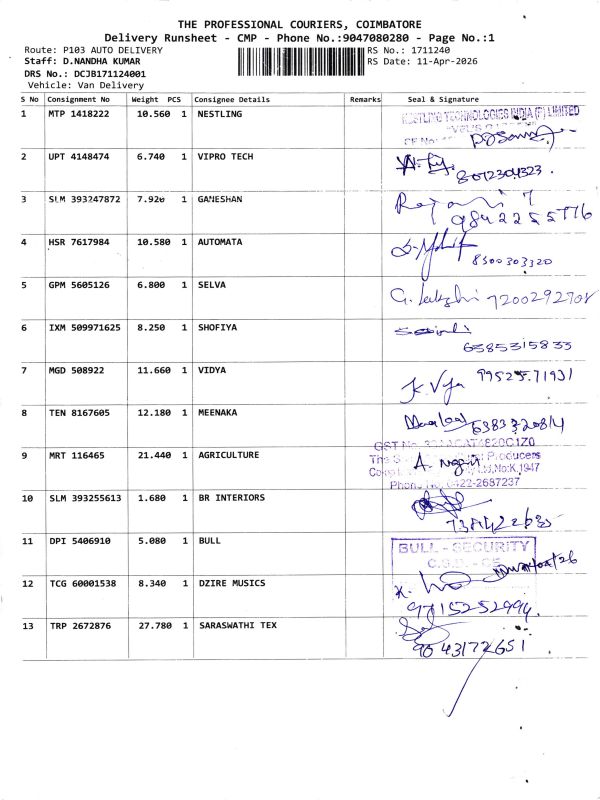 THE PROFESSIONAL COURIERS, COIMBATORE
Delivery Runsheet - CMP - Phone No.:9047080280 - Page No.:1
Route: P103 AUTO DELIVERY RS No.: 1711240
Staff: D.NANDHA KUMAR RS Date: 11-Apr-2026
DRS No.: DCJB171124001
Vehicle: Van Delivery
S No Consignment No Weight PCS Consignee Details Remarks Seal & Signature
1 MTP 1418222 10.560 1 NESTLING
TECHNOLOGIES INDIA (P) LIMITED
2 UPT 4148474 6.740 1 VIPRO TECH
8072304323
3 SLM 393247872 7.920 1 GANESHAN
9842255776
4 HSR 7617984 10.580 1 AUTOMATA
8300303320
5 GPM 5605126 6.800 1 SELVA
7200292708
6 IXM 509971625 8.250 1 SHOFIYA
6385315833
7 MGD 508922 11.660 1 VIDYA
K. Vidya 9952571931
8 TEN 8167605 12.180 1 MEENAKA
6383320814
GST No.
9 MRT 116465 21.440 1 AGRICULTURE
Producers
No:K.1947
Phone No. 0422-2687237
10 SLM 393255613 1.680 1 BR INTERIORS
11 DPI 5406910 5.080 1 BULL
BULL - SECURITY
12 TCG 60001538 8.340 1 DZIRE MUSICS
9715252994
13 TRP 2672876 27.780 1 SARASWATHI TEX
9043172651